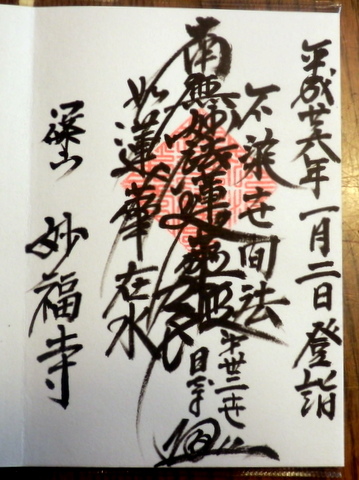 平成廿六年一月二日登詣
不染世間法
南無妙法蓮華経
第廿二世
日
如蓮華在水
深山 妙福寺